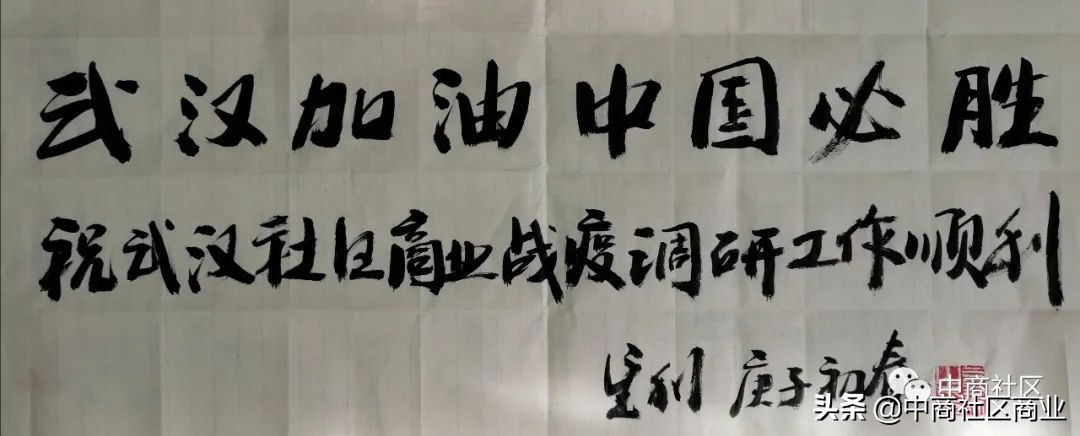 武汉加油中国必胜
祝武汉社区商业战疫调研工作顺利
利 庚子初春
中商社区
头条 @中商社区商业